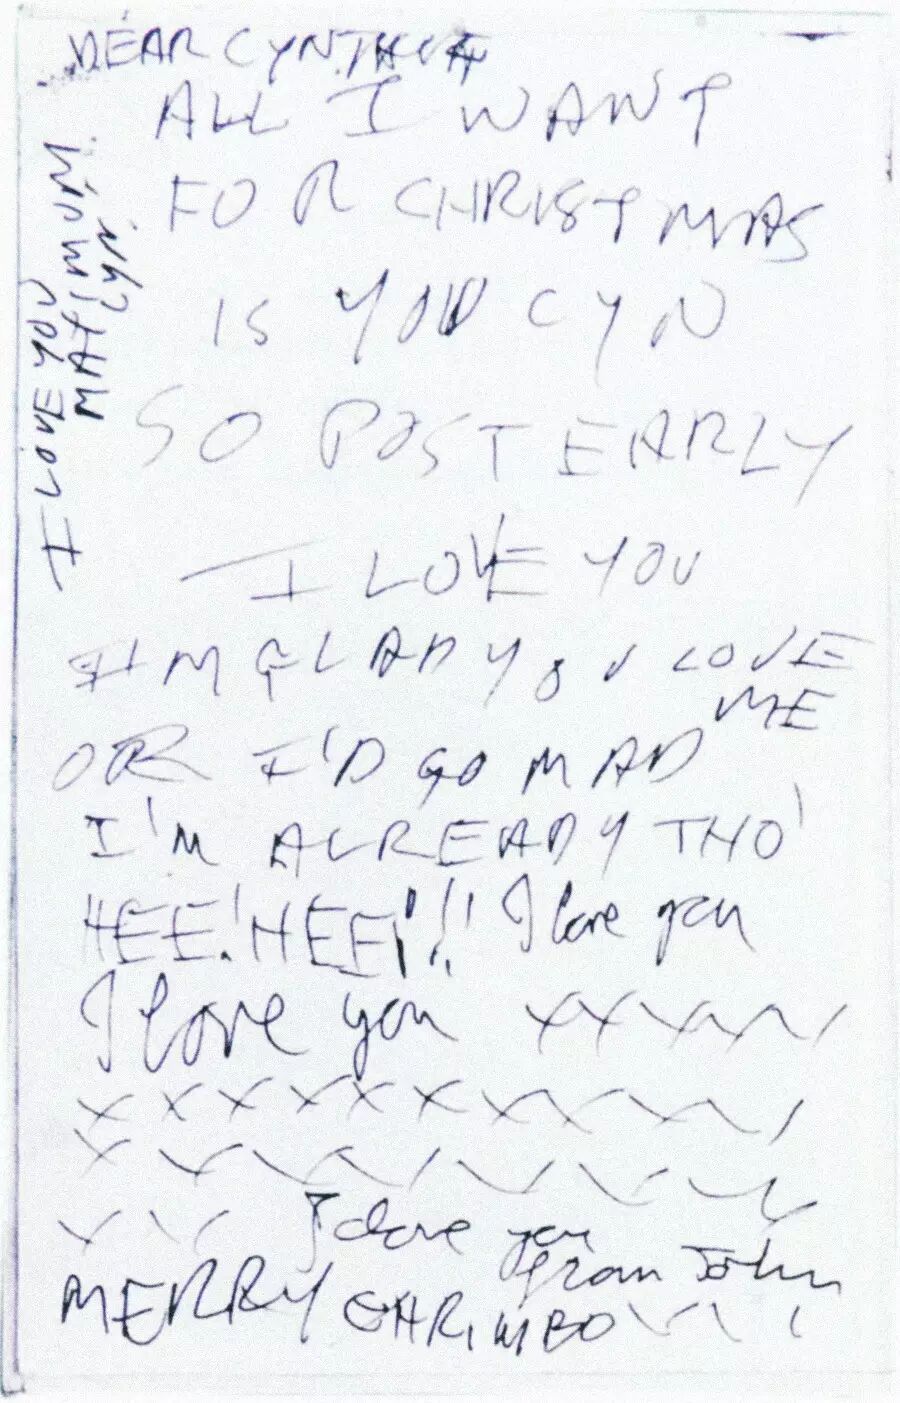 DEAR CYNTHIA
ALL I WANT
FOR CHRISTMAS
IS YOU CYN
SO POST EARLY
I LOVE YOU
I'M GLAD YOU LOVE
ME
OR I'D GO MAD
I'M ALREADY THO'
HEE! HEE!!!! I love you
I love you xxxxxx
xxxxxxxxxx
xxxxxxxx
xxx I love you
from John
MERRY CHRIMBO xxx
I LOVE YOU